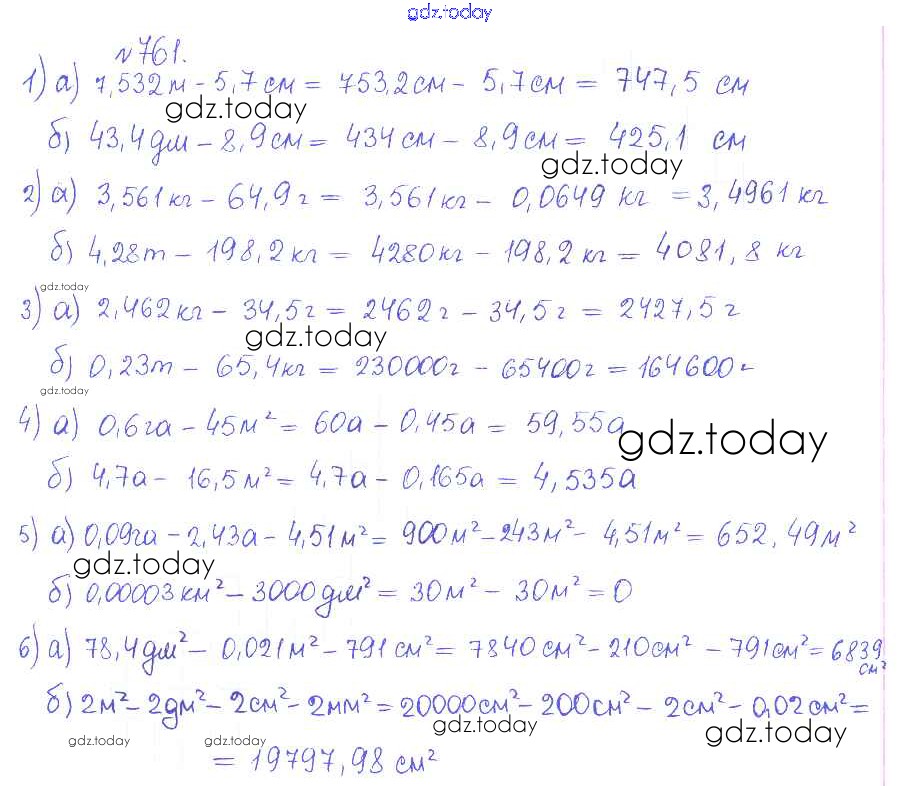 gdz.today
№761.
1) а) 7,532м - 5,7см = 753,2см - 5,7см = 747,5 см
gdz.today
б) 43,4дм - 8,9см = 434см - 8,9см = 425,1 см
gdz.today
2) а) 3,561кг - 64,9г = 3,561кг - 0,0649 кг = 3,4961 кг
б) 4,28т - 198,2кг = 4280кг - 198,2кг = 4081,8 кг
gdz.today
3) а) 2,462кг - 34,5г = 2462г - 34,5г = 2427,5г
gdz.today
б) 0,23т - 65,4кг = 230000г - 65400г = 164600г
gdz.today
4) а) 0,6га - 45м² = 60а - 0,45а = 59,55а
gdz.today
б) 4,7а - 16,5м² = 4,7а - 0,165а = 4,535а
5) а) 0,09га - 2,43а - 4,51м² = 900м² - 243м² - 4,51м² = 652,49м²
gdz.today
б) 0,00003км² - 3000дм² = 30м² - 30м² = 0
6) а) 78,4дм² - 0,021м² - 791см² = 7840см² - 210см² - 791см² = 6839
см²
б) 2м² - 2дм² - 2см² - 2мм² = 20000см² - 200см² - 2см² - 0,02см² =
gdz.today
gdz.today
gdz.today gdz.today
= 19797,98 см²